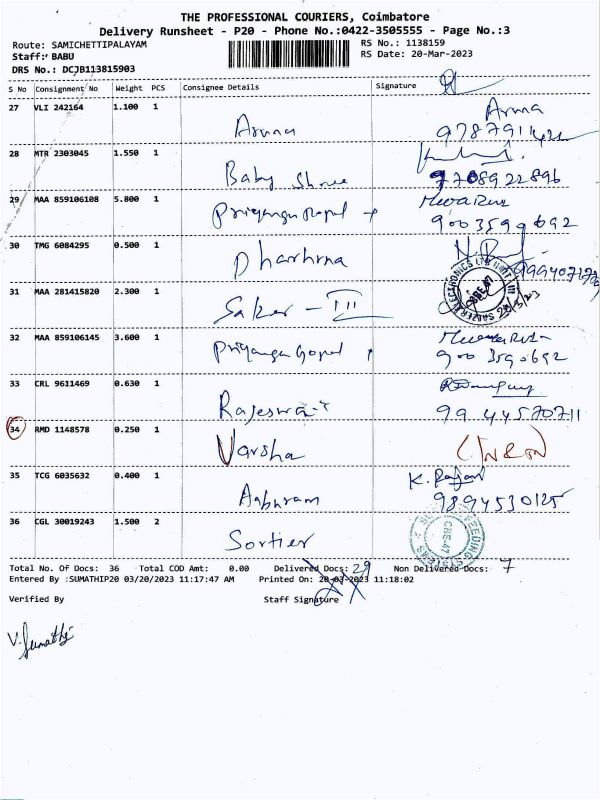 THE PROFESSIONAL COURIERS, Coimbatore
Delivery Runsheet - P20 - Phone No.:0422-3505555 - Page No.:3
Route: SAMICHETTIPALAYAM
RS No.: 1138159
Staff: BABU
RS Date: 20-Mar-2023
DRS No.: DCJB113815903
S No Consignment No Weight PCS Consignee Details Signature
27 VLI 242164 1.100 1 Aruna Aruna
28 MTR 2303045 1.550 1 Baby Shree 7708922896
29 MAA 859106108 5.800 1 Priyanga Gopal 9003590692
30 TMG 6084295 0.500 1 Dharhrna
31 MAA 281415820 2.300 1 Saker - III
32 MAA 859106145 3.600 1 Priyanga Gopal 9003590692
33 CRL 9611469 0.630 1 Rajeswari 9944570711
34 RMD 1148578 0.250 1 Varsha
35 TCG 6035632 0.400 1 K. Rajan
9894530125
36 CGL 30019243 1.500 2 Sortier
Total No. Of Docs: 36 Total COD Amt: 0.00 Delivered Docs: 29 Non Delivered Docs: 7
Entered By :SUMATHIP20 03/20/2023 11:17:47 AM Printed On: 20-03-2023 11:18:02
Verified By Staff Signature
V. Sumathi